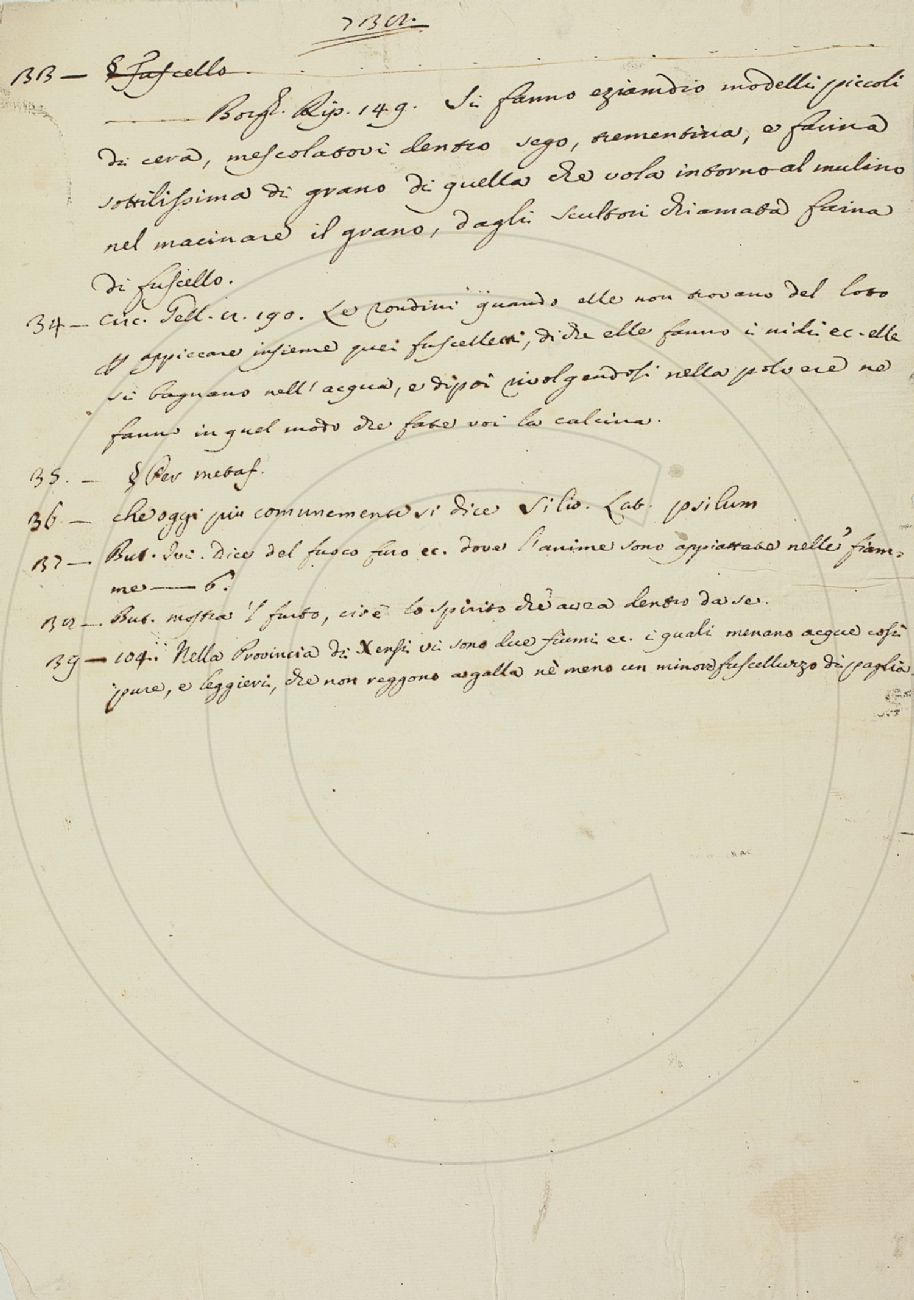 738.
33 — § Fuscello
Borgh. Rip. 149. Si fanno eziandio modelli piccoli
di cera, mescolatovi dentro sego, trementina, e farina
sottilissima di grano di quella che vola intorno al mulino
nel macinare il grano, dagli scultori chiamata farina
di fuscello.
34 — Circ. Gell. 2. 190. Le rondini quando elle non trovano del loto
p appiccare insieme quei fuscelletti, di che elle fanno i nidi ec. elle
si bagnano nell'acqua, e dipoi rivolgendosi nella polvere ne
fanno in quel modo che fate voi la calcina.
35. — § Per metaf.
36 — che oggi più comunemente si dice Silio. Lat. psilum
37 — But. Ivi. Dice del fuoco furo ec. dove l'anime sono appiattate nelle fiam=
me — 6.
38 — But. mostra 'l furto, cioè lo spirito che avea dentro da se.
39 — 104. Nella Provincia di Xensi vi sono due fiumi ec. i quali menano acque così
pure, e leggieri, che non reggono a galla nè meno un minore fuscelluzzo di paglia.